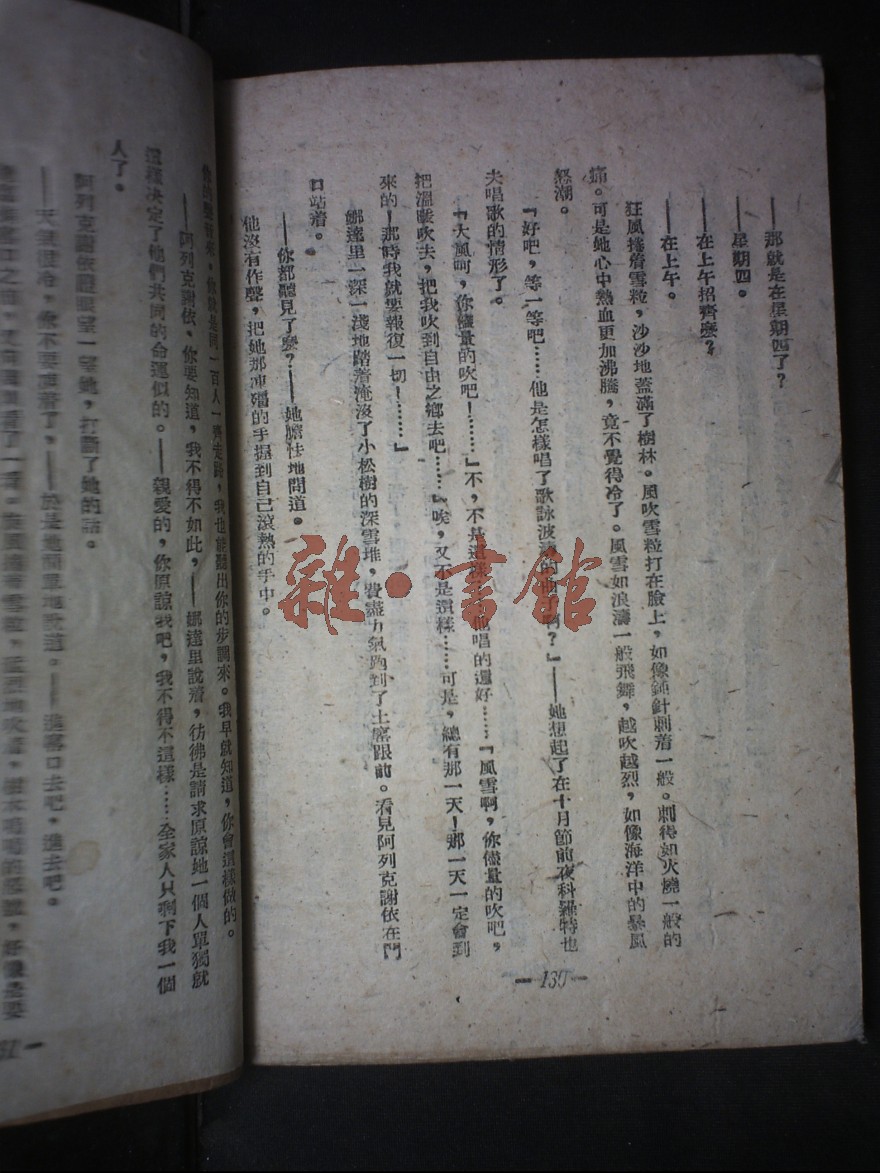 ——那就是在星期四了?
——星期四。
——在上午招齊麽?
——在上午。
狂風捲着雪粒,沙沙地蓋滿了樹林。風吹雪粒打在臉上,如像鍾針刺着一般。刺得如火燒一般的
痛。可是她心中熱血更加沸騰,竟不覺得冷了。風雪如浪濤一般飛舞,越吹越烈,如像海洋中的暴風
怒潮。
『好吧,等一等吧……他是怎樣唱了歌詠波濤的曲子啊?』——她想起了在十月節前夜科羅特也
夫唱歌的情形了。
『大風呵,你儘量的吹吧!……』不,不是這樣,他唱的還好……『風雪啊,你儘量的吹吧,
把溫暖吹去,把我吹到自由之鄉去吧……』唉,又不是這樣……可是,總有那一天!那一天一定會到
來的!那時我就要報復一切!……』
娜達里一深一淺地踏着淹沒了小松樹的深雪堆,費盡力氣跑到了土窰跟前。看見阿列克謝依在門
口站着。
——你都聽見了麽?——她膽怯地問道。
他沒有作聲,把她那凍殭的手握到自己滾熱的手中。
—130—
一百人一齊走路,我也能聽出你的步調來。我早就知道,你會這樣做的。
——阿列克謝依,你要知道,我不得不如此,——娜達里說着,彷彿是請求原諒她一個人單獨就
這樣决定了他們共同的命運似的。——親愛的,你原諒我吧,我不得不這樣……全家人只剩下我一個
人了。
阿列克謝依 望一望她,打斷了她的話。
——天 冷,你不要 着了,——於是他 地 道。——進 口去吧,進去吧。
雜·書館